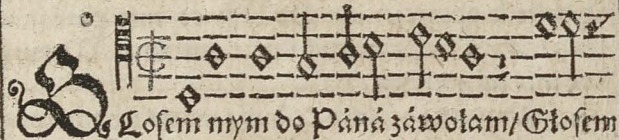 GLosem mym do Páná záwołam/ Głosem